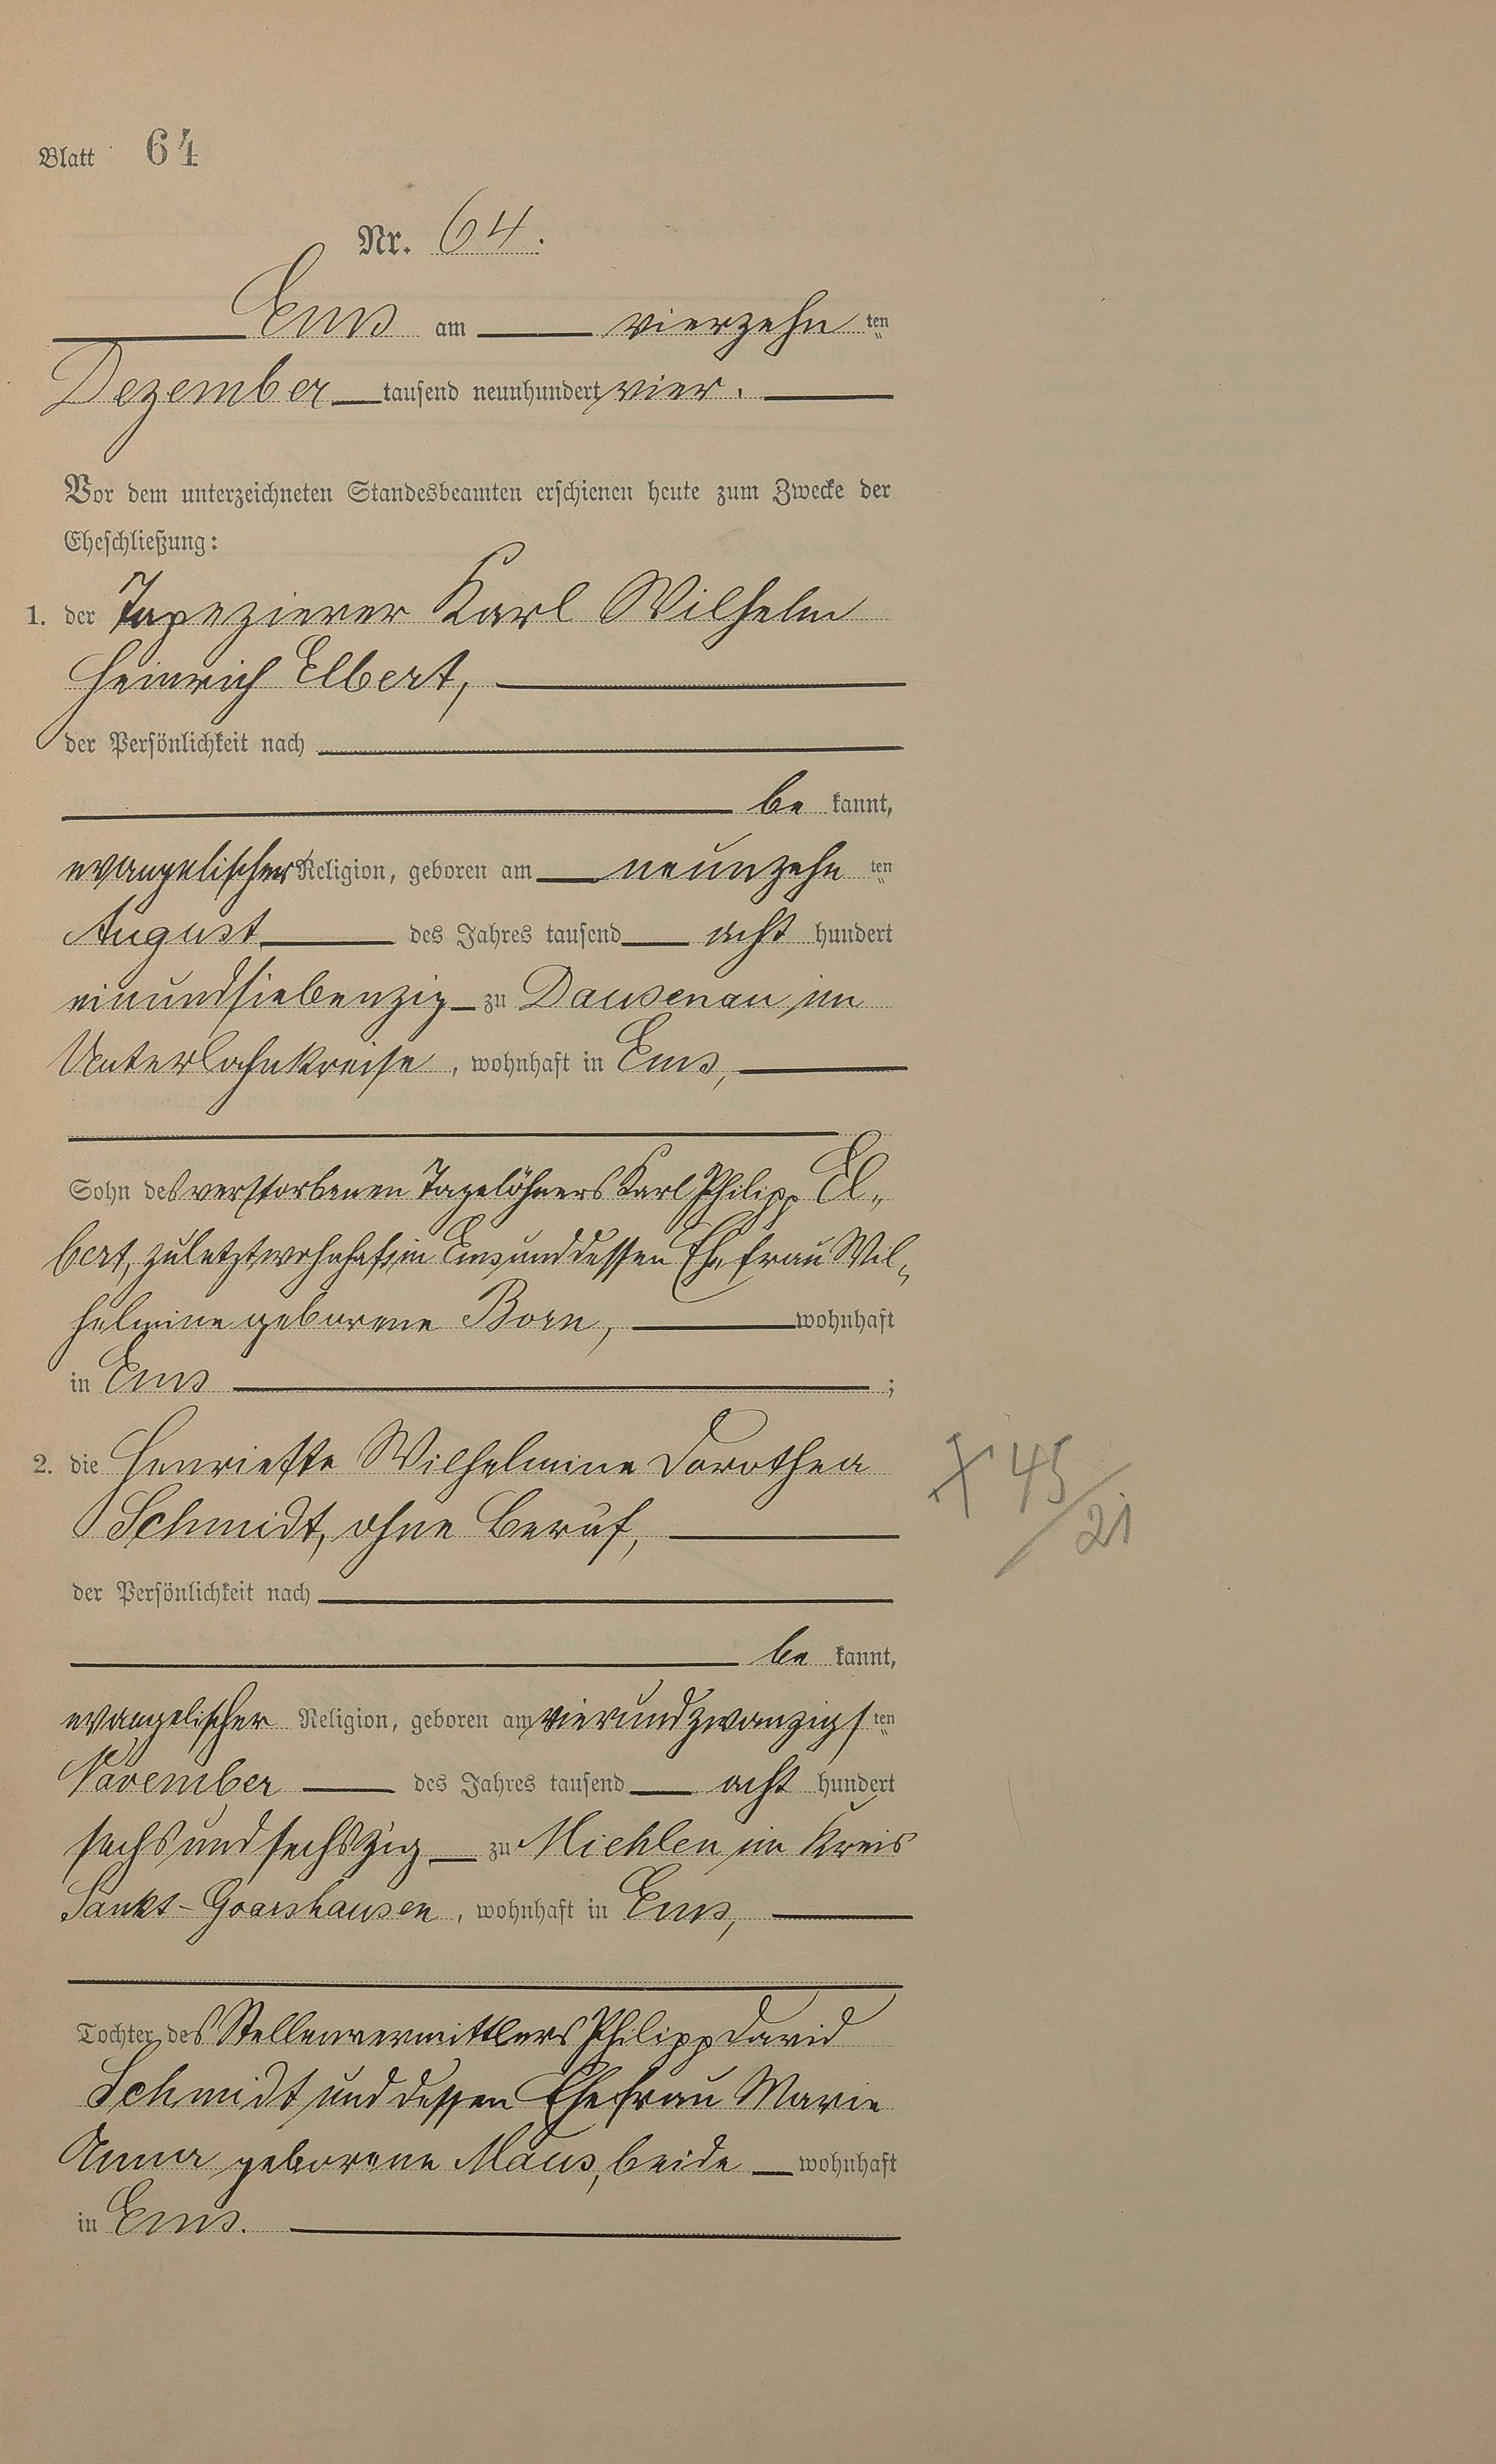 Blatt 64
Nr. 64.
Ems am vierzehn ten
Dezember tausend neunhundert vier.
Vor dem unterzeichneten Standesbeamten erschienen heute zum Zwecke der
Eheschließung:
1. der Tapezierer Karl Wilhelm
Heinrich Elbert,
der Persönlichkeit nach
be kannt,
evangelischer Religion, geboren am neunzehn ten
August des Jahres tausend acht hundert
einundsiebenzig zu Dausenau im
Unterlahnkreise, wohnhaft in Ems,
Sohn des verstorbenen Tagelöhners Karl Philipp El-
bert, zuletzt wohnhaft in Ems und dessen Ehefrau Wil-
helmine geborene Born, wohnhaft
in Ems ;
2. die Henriette Wilhelmine Dorothea
Schmidt, ohne Beruf,
der Persönlichkeit nach
be kannt,
evangelischer Religion, geboren am vierundzwanzigs ten
November des Jahres tausend acht hundert
sechsundsechszig zu Miehlen im Kreis
Sankt-Goarshausen, wohnhaft in Ems,
Tochter des Stellenvermittlers Philipp David
Schmidt und dessen Ehefrau Marie
Anna geborene Maus, beide wohnhaft
in Ems.
45/21